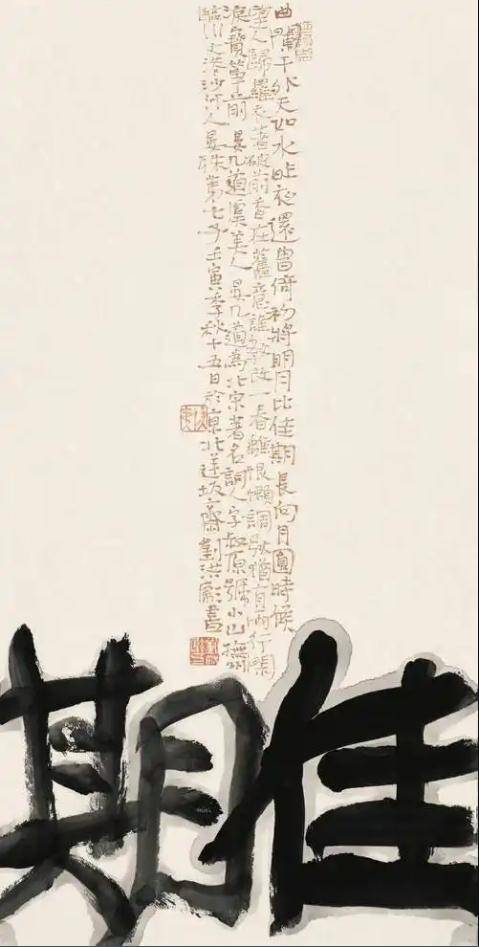 曲闌干外天如水昨夜還曾倚初將明月比佳期長向月圓時候
望人歸羅衣著破前香在舊意誰教改一春離恨懶調弦猶有兩行閑
淚寶箏前 晏几道虞美人 晏几道為北宋著名詞人字叔原號小山撫州
臨川文港沙河人晏殊第七子壬寅季秋十五日於京北齋劉洪彪書
佳期